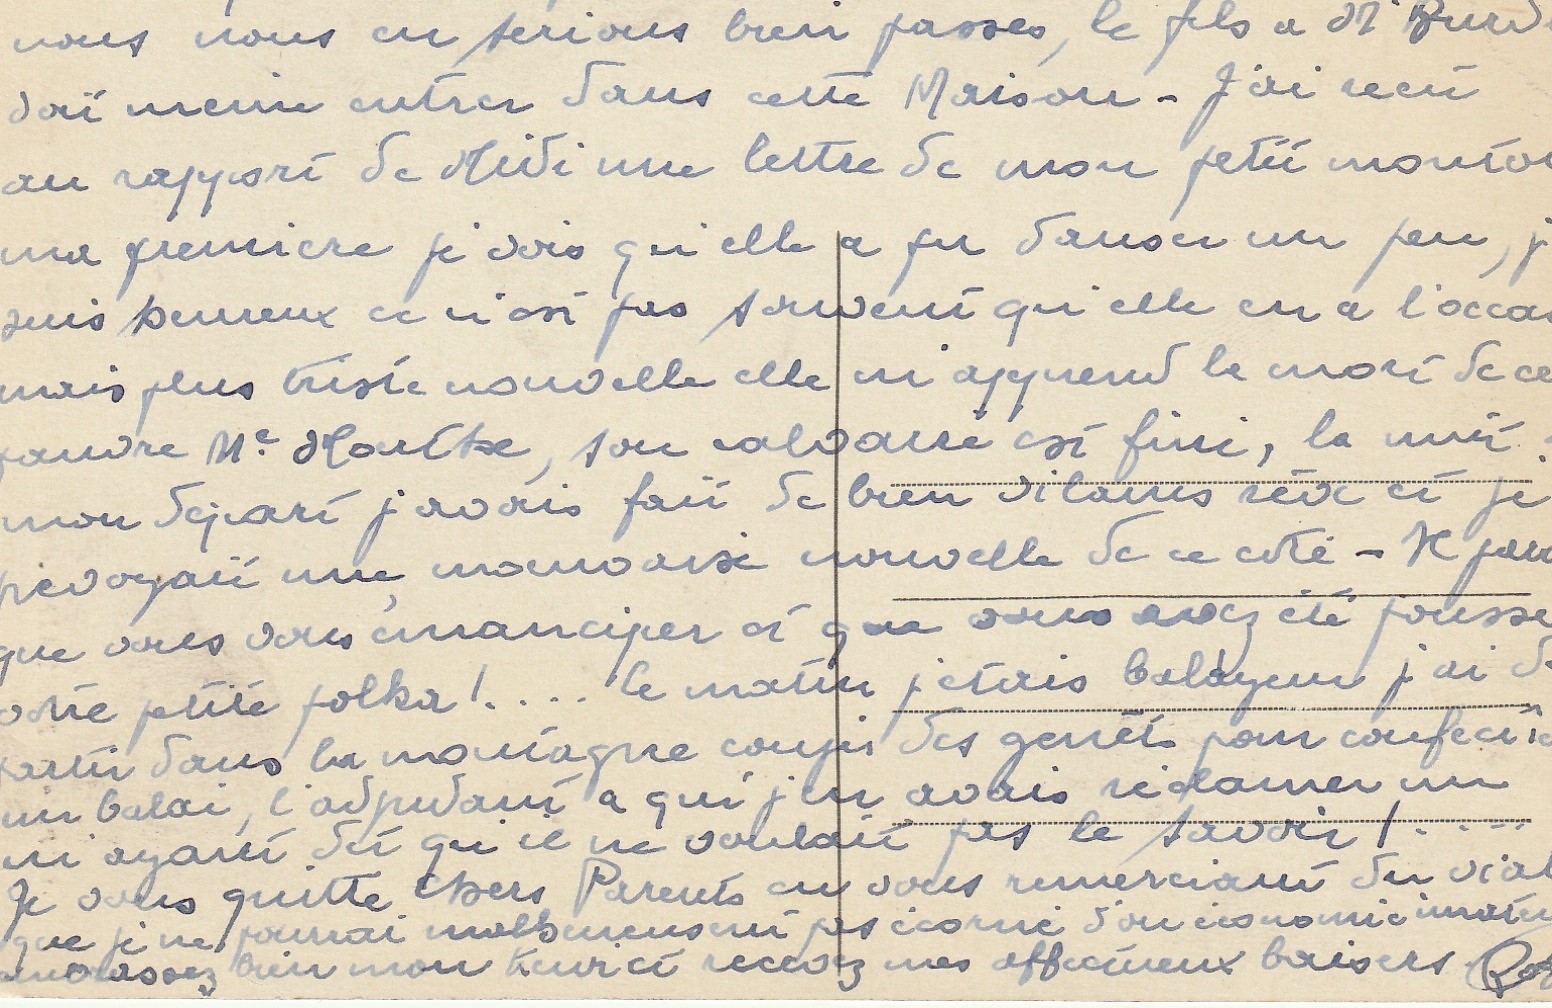 nous nous en serions bien passés, le fils a Mr
doit meme entrer dans cette Maison - J'ai recu
au rapport de Midi une lettre de mon petit
ma premiere je vois qu'elle a pu danser un peu, j
suis heureux ce n'est pas souvent qu'elle en a l'occas
mais plus triste nouvelle elle m'apprend la mort de ce
pauvre Me, son calvaire est fini, la nuit
mon depart j'avais fait de bien vilains rêve et je
prevoyait une mauvaise nouvelle de ce coté - Il
que vous vous émanciper et que vous avez été pousse
votre petite polka!.... Le matin j'etais balayeur j'ai
partir dans la montagne couper des genêts pour
un balai, l'adjudant a qui j'en avais réclamer un
m'ayant dit qu'il ne voulait pas le savoir!....
Je vous quitte Chers Parents en vous remerciant du
que je ne pourrai malheureusement pas d'un economie
embrassez bien mon et recevez mes affectueux baisers